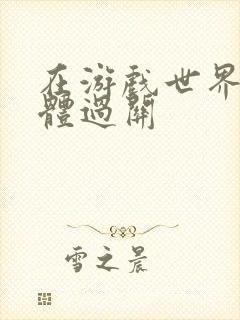 在游戏世界
體過關
雪之晨